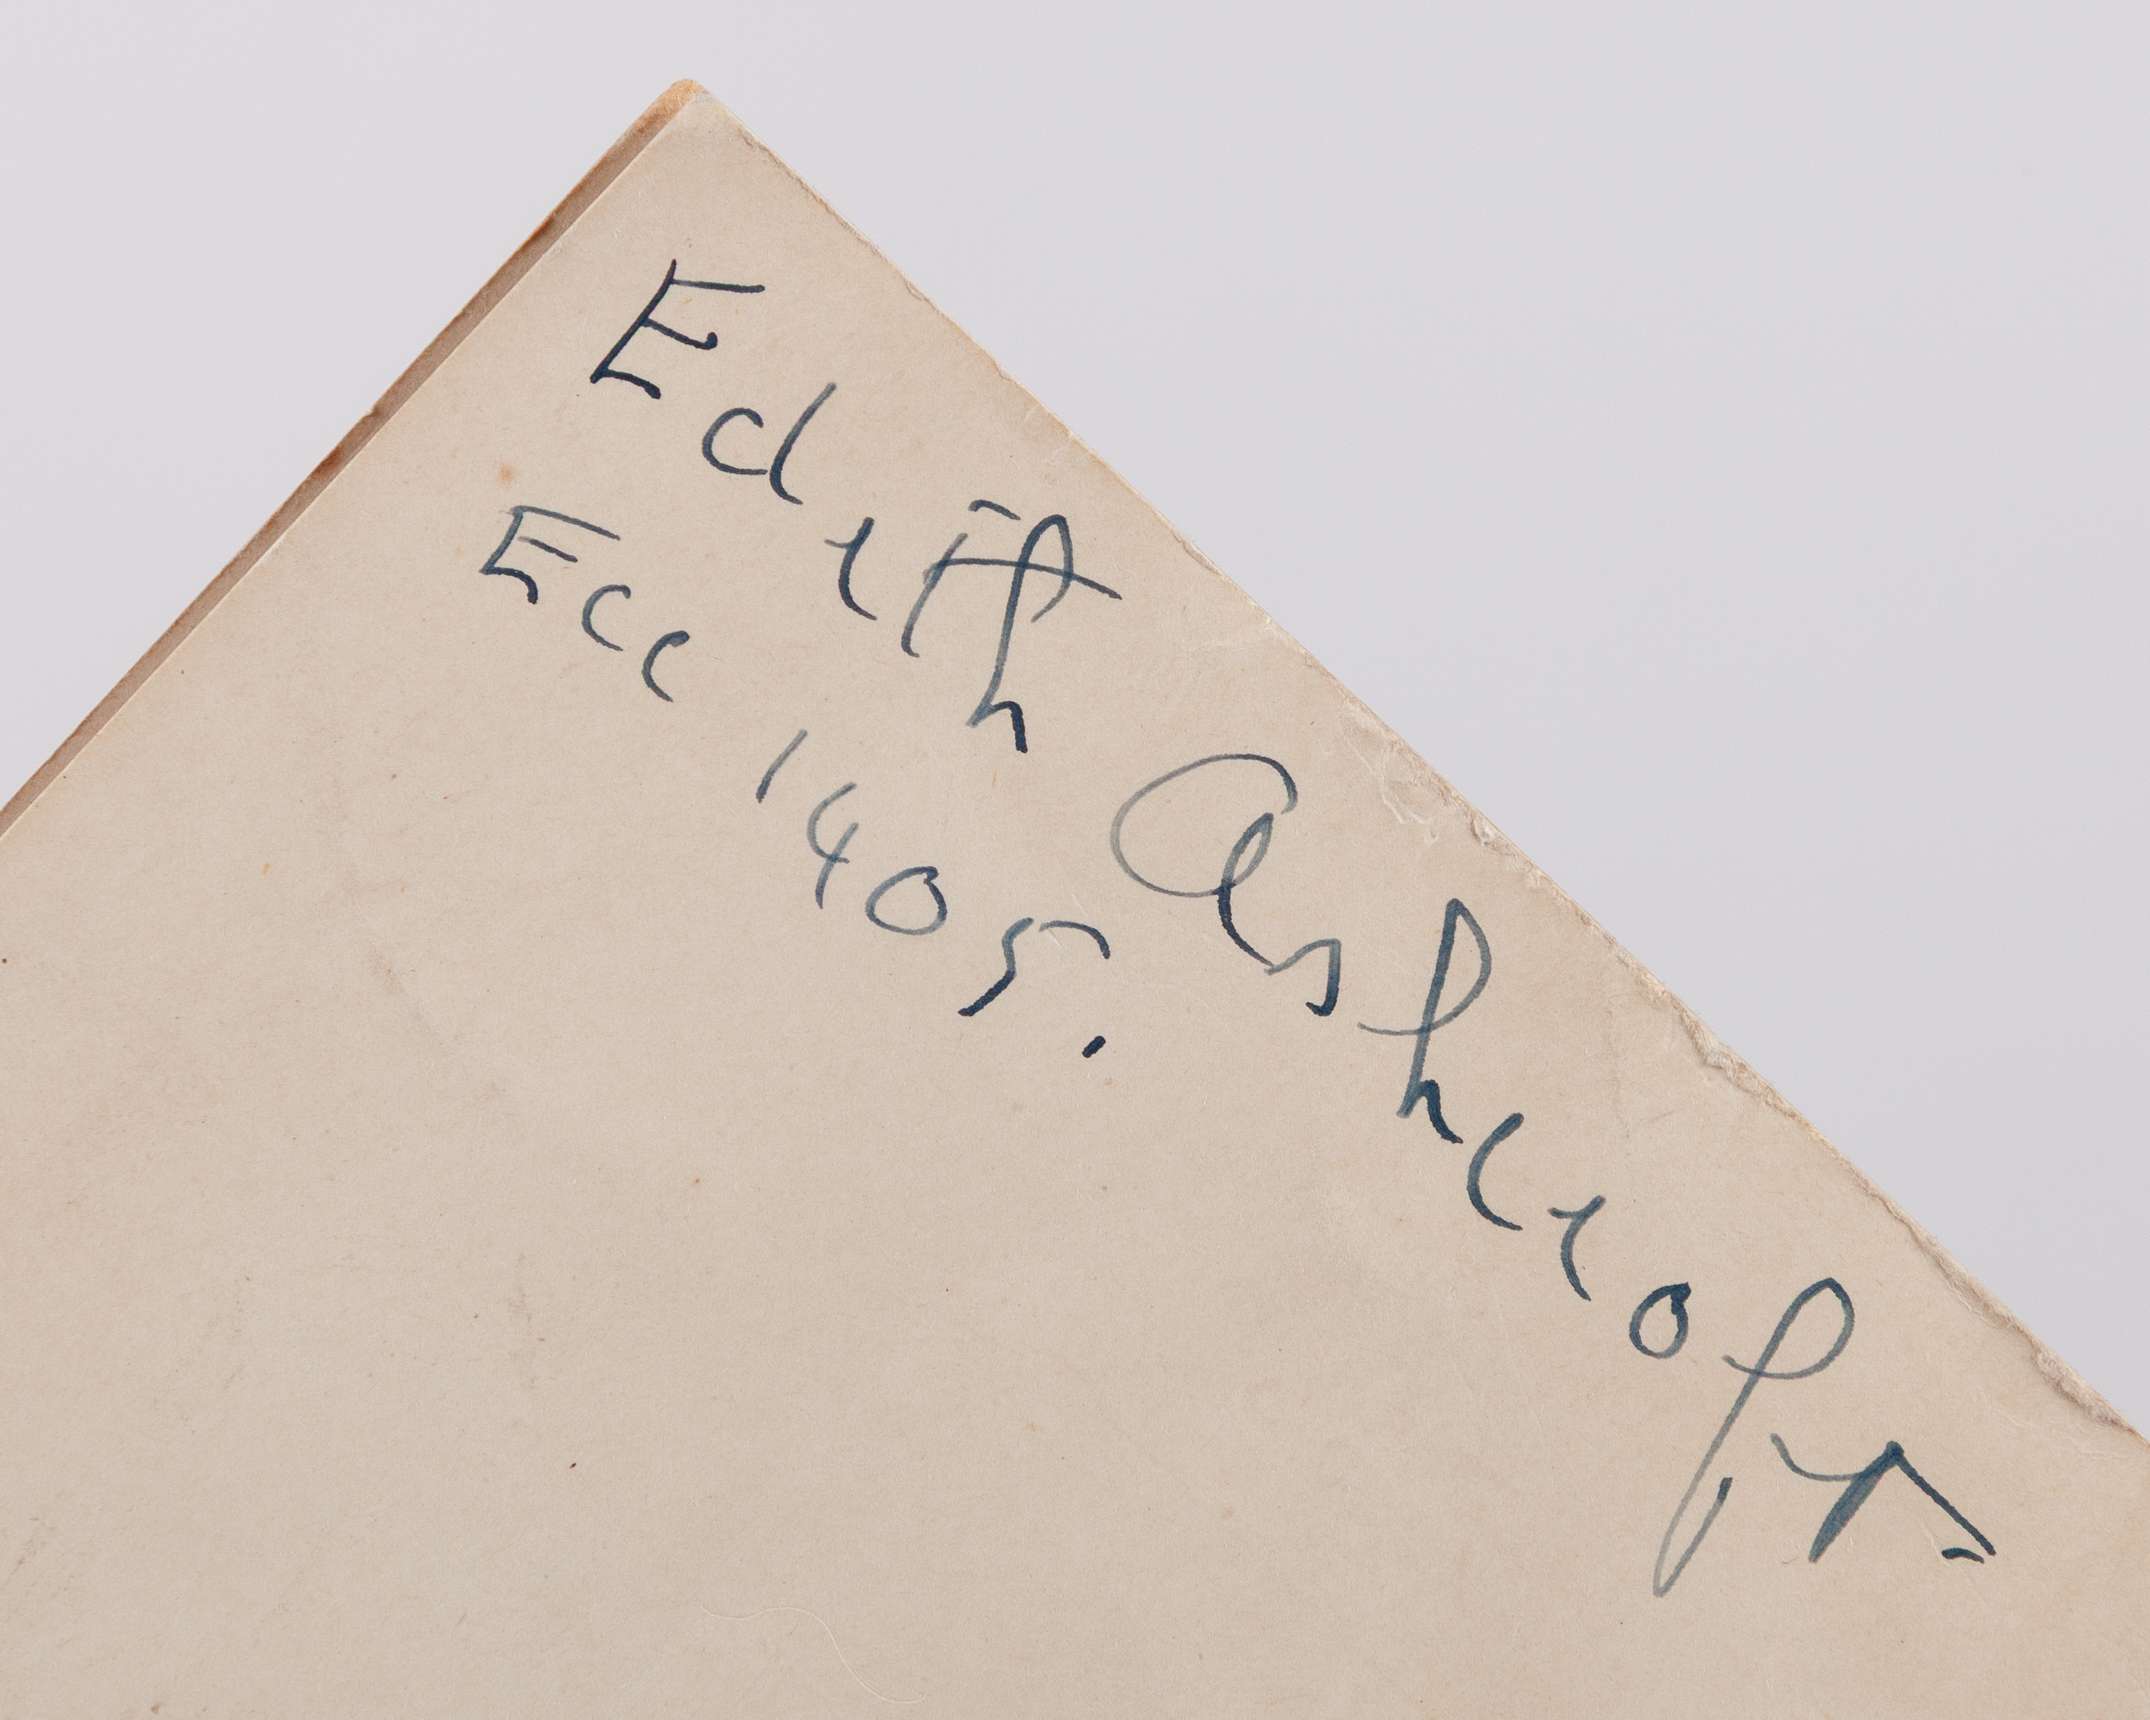 Edith Ashcroft
Ecc 1405.